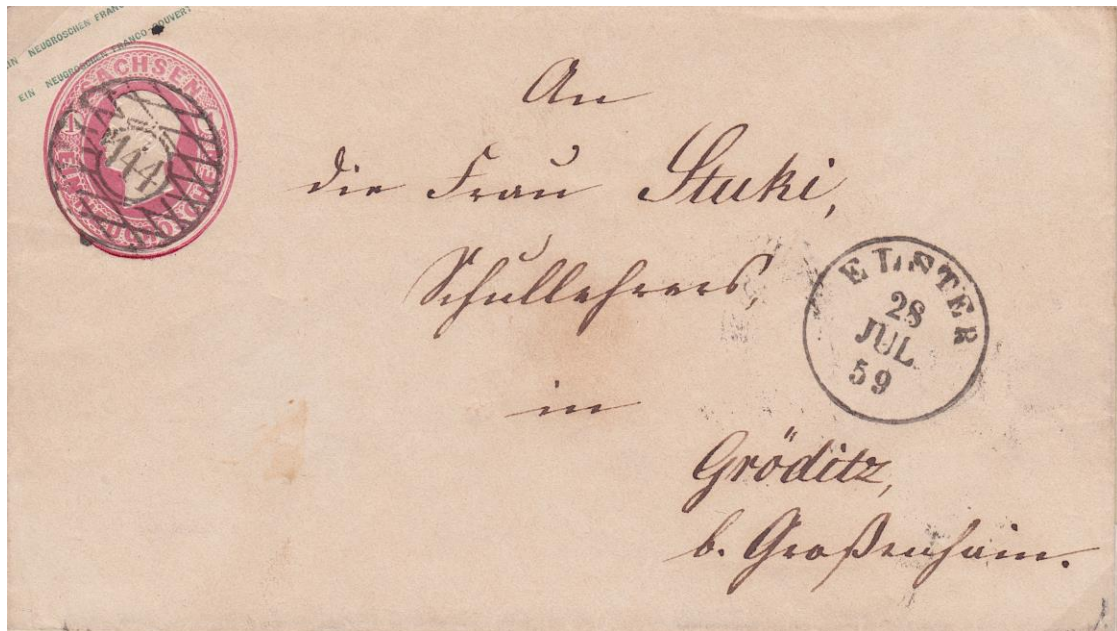 EIN NEUGROSCHEN FRAN
EIN NEUGROSCHEN FRANCO COUVERT
SACHSEN
1
144
An
die Frau Stuki,
Schullehrers,
in
Gröditz,
b. Großenhain.
ELSTER
28
JUL
59